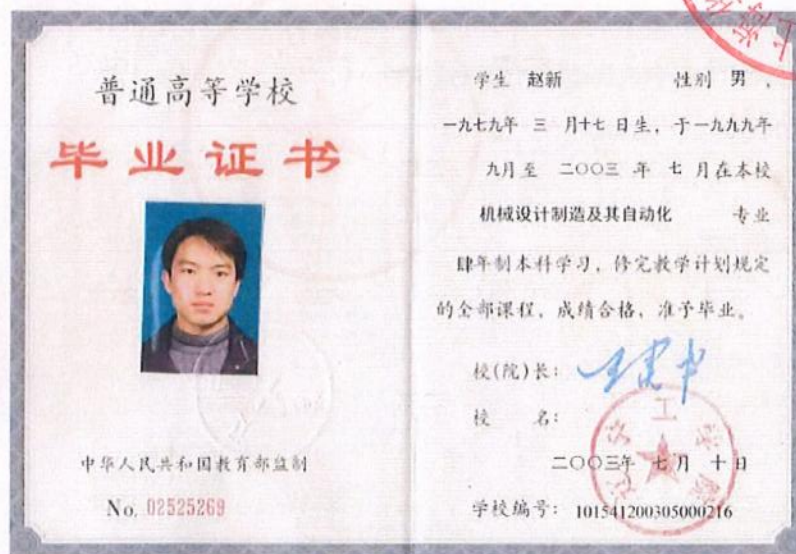 普通高等学校
毕业证书
中华人民共和国教育部监制
No. 02525269
学生 赵新 性别 男，
一九七九年 三 月十七 日生，于一九九九年
九月至 二〇〇三 年 七 月在本校
机械设计制造及其自动化 专业
肆年制本科学习，修完教学计划规定
的全部课程，成绩合格，准予毕业。
校(院)长：
校 名：
辽宁工学院
二〇〇三年 七 月 十 日
学校编号： 101541200305000216